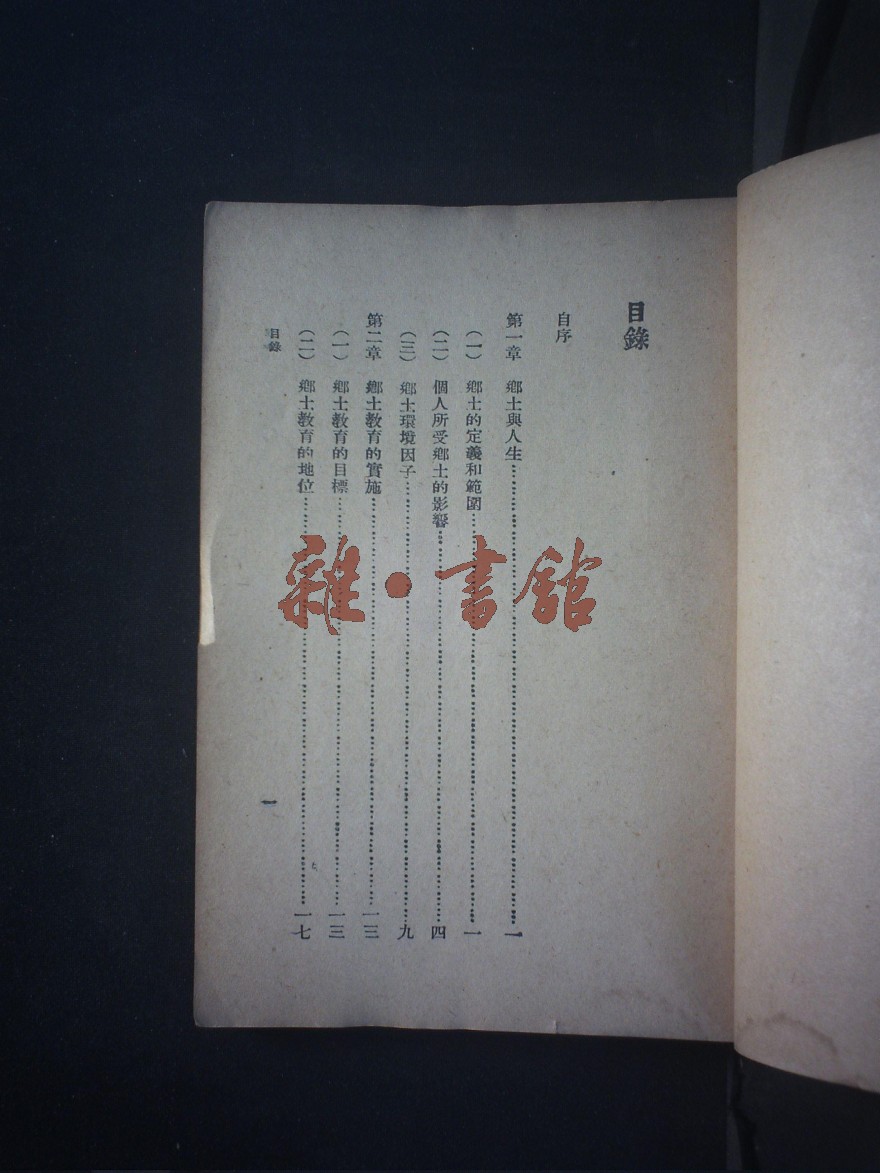 目錄
自序
第一章 鄉土與人生……一
（一） 鄉土的定義和範圍……一
（二） 個人所受鄉土的影響……四
（三） 鄉土環境因子……九
第二章 鄉土教育的實施……一三
（一） 鄉土教育的目標……一三
（二） 鄉土教育的地位……一七
目錄
一
雜·書館